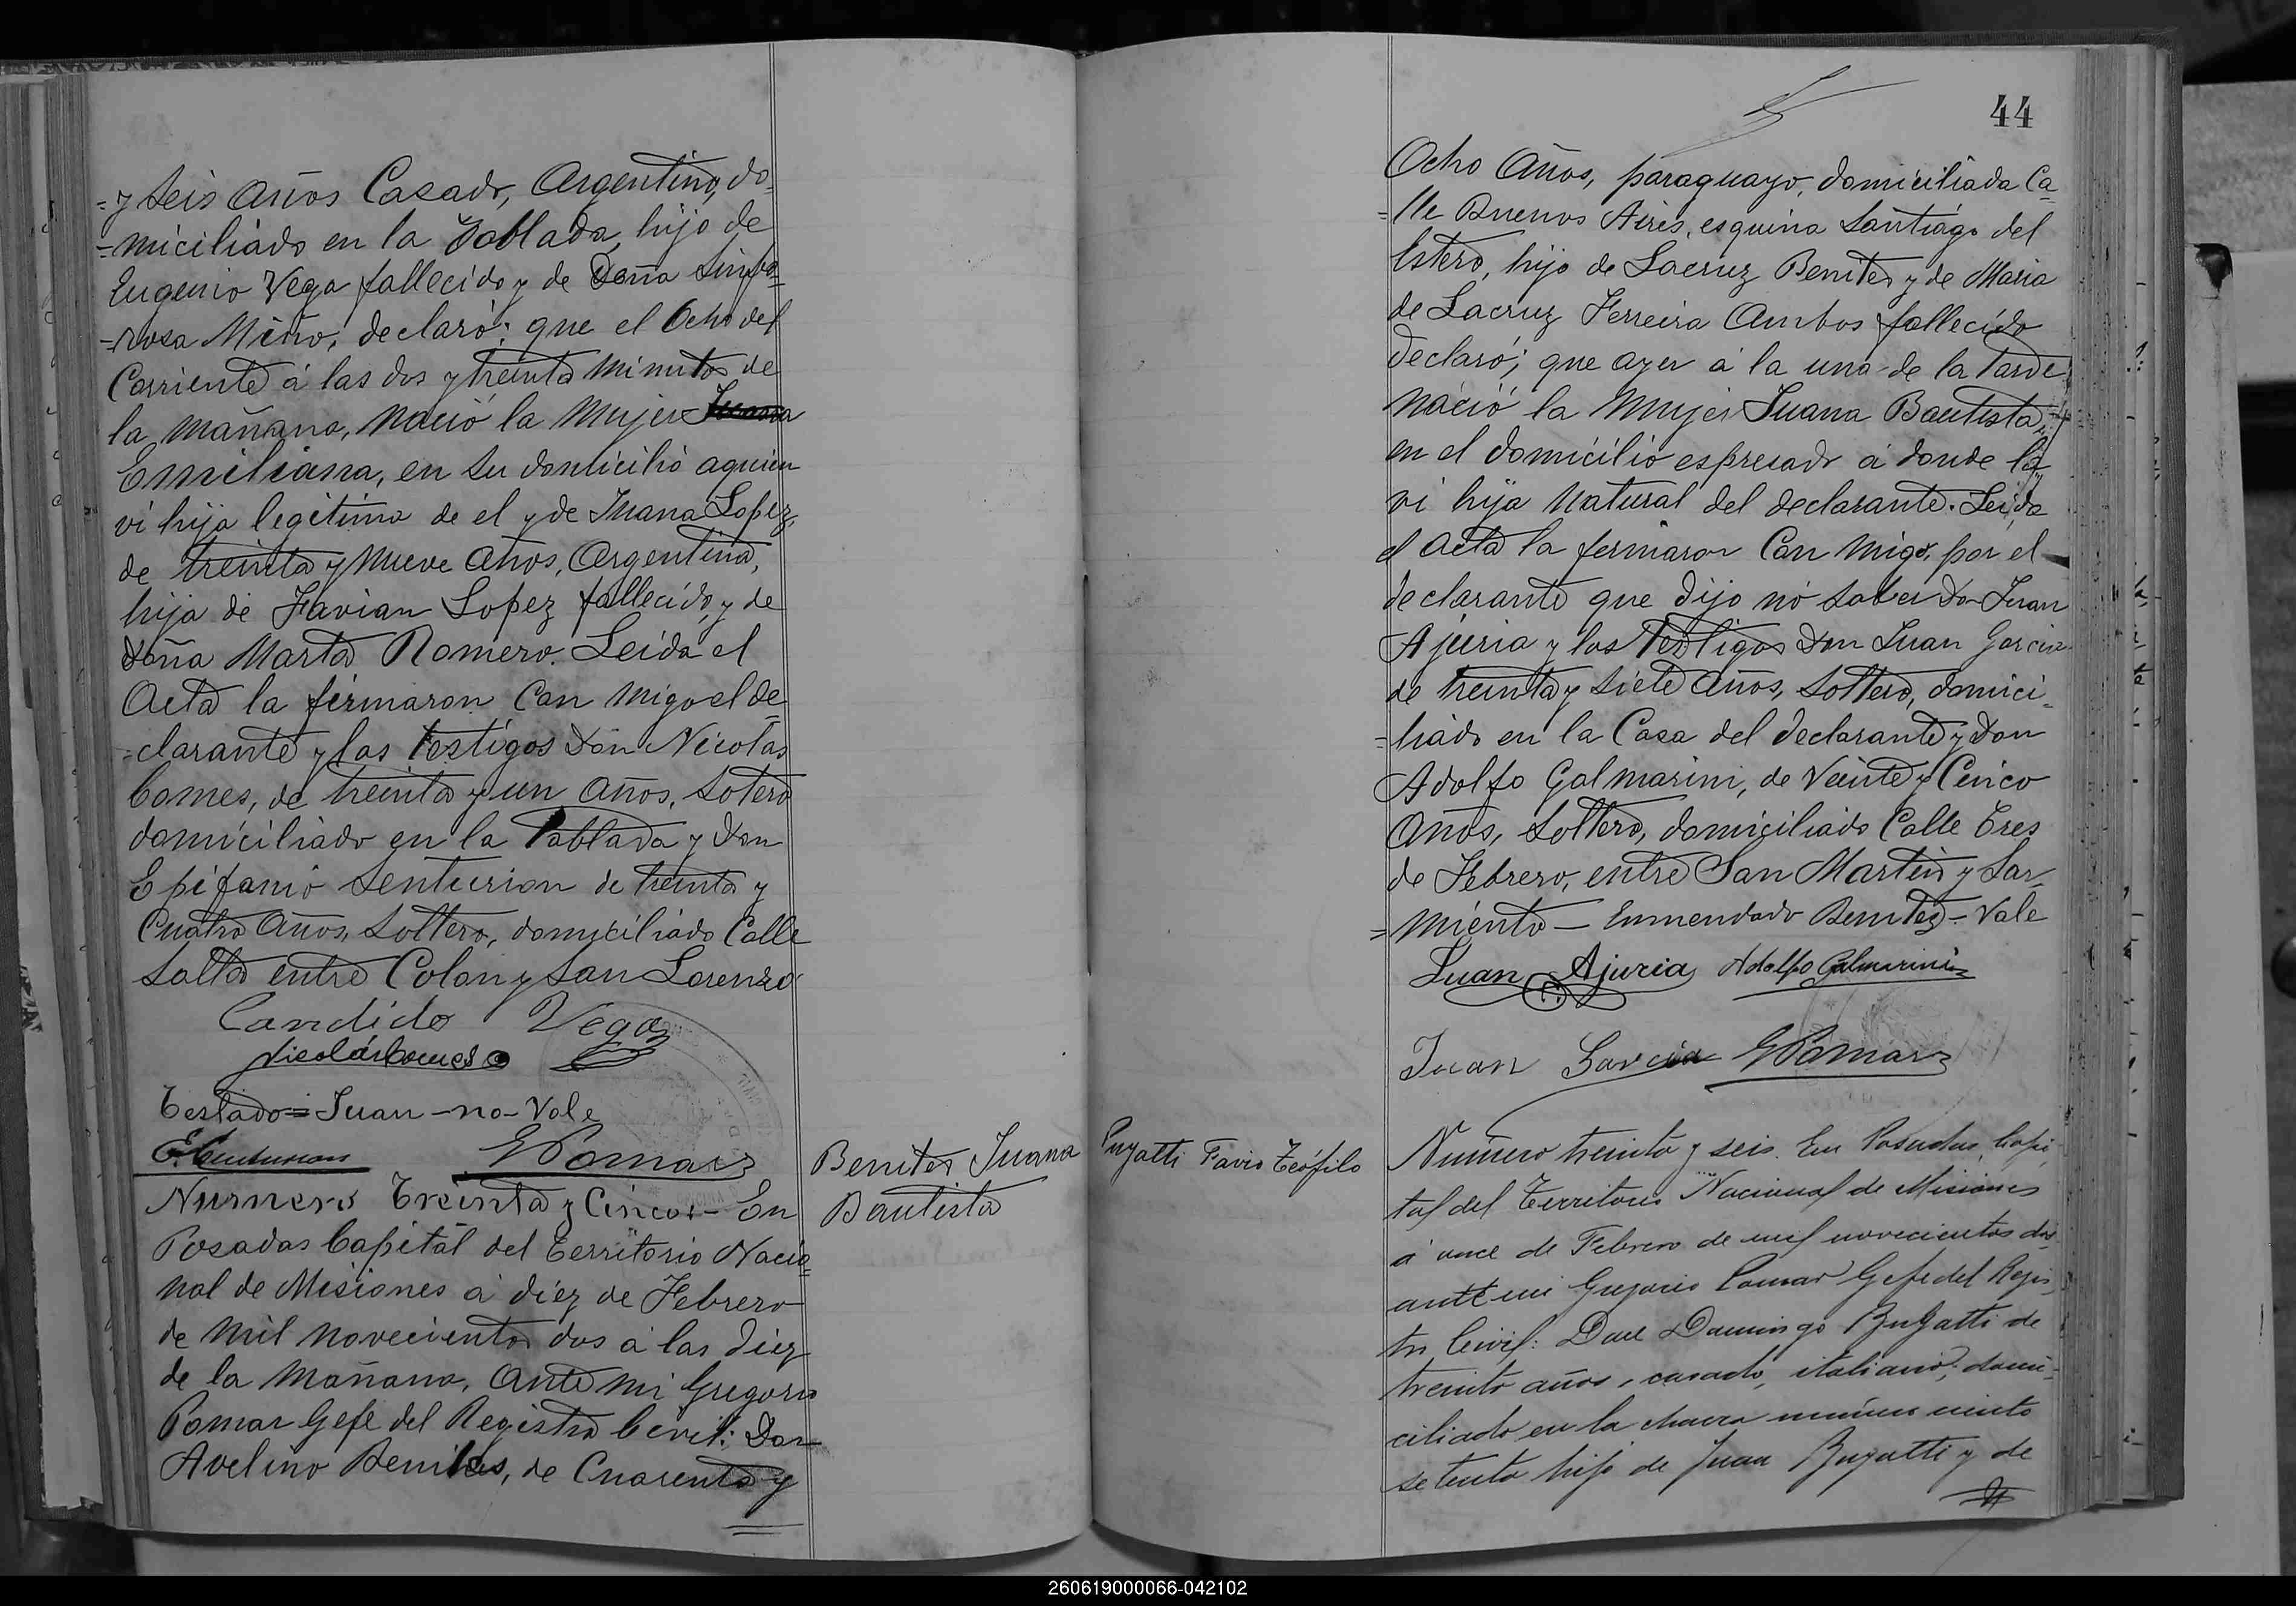 =y seis años Casado, Argentino, do=
=miciliado en la Tablada, hijo de
Eugenio Vega fallecido y de Doña Simfo=
=rosa Miño, declaró: que el Ocho del
Corriente á las dos y treinta minutos de
la mañana, nació la Mujer Juana
Emiliana, en su domicilio aquien
vi hija legitima de el y de Juana Lopez,
de treinta y Nueve años, Argentina,
hija de Favian Lopez fallecido, y de
Doña Marta Romero. Leida el
Acta la firmaron Con migo el de
=clarante y los testigos Don Nicolas
Comes, de treinta y un años, Sotero
domiciliado en la Tablada y Don
Epifanio Senturion de treinta y
Cuatro Años, Soltero, domiciliado Calle
Salta entre Colon y San Lorenzo
Candido Vega
Nicolás Comes
Testado = Juan - no - Vale
E. Centurion GPomar
Numero Treinta y Cinco: - En
Posadas Capital del Territorio Nacio=
nal de Misiones á diez de Febrero
de mil novecientos dos á las diez
de la Mañana, Ante mi Gregorio
Pomar Gefe del Registro Civil: Don
Avelino Benites, de Cuarenta y
Benites Juana
Bautista
44
Ocho Años, paraguayo, domiciliada Ca=
=lle Buenos Aires, esquina Santiago del
Estero, hijo de Lacruz Benites y de Maria
de Lacruz Ferreira Ambos fallecido
declaró; que ayer á la una de la tarde
nació la Mujer Juana Bautista,
en el domicilio espresado á donde la
vi hija Natural del declarante. Leida
el Acta la fermaron Con migo, por el
declarante que dijo no saber Don Juan
Ajuria y los Testigos Don Juan Garcia
de treinta y siete Años, Soltero, domici=
=liado en la Casa del declarante y Don
Adolfo Galmarini, de Veinte y Cinco
Años, Soltero, domiciliado Calle Tres
de Febrero, entre San Martin y Sar=
=miento — Enmendado Benites - Vale
Juan Ajuria Adolfo Galmarini
Juan Garcia GPomar
Pugatti Favio Teófilo
Número treinta y seis. En Posadas, Capi
tal del Territorio Nacional de Misiones
á once de Febrero de mil novecientos dos,
ante mi Gregorio Pomar Gefe del Regis
tro Civil: Don Domingo Bugatti de
treinta años, casado, italiano, domi=
ciliado en la chacra número ciento
setenta hijo de Juan Bugatti y de
260619000066-042102